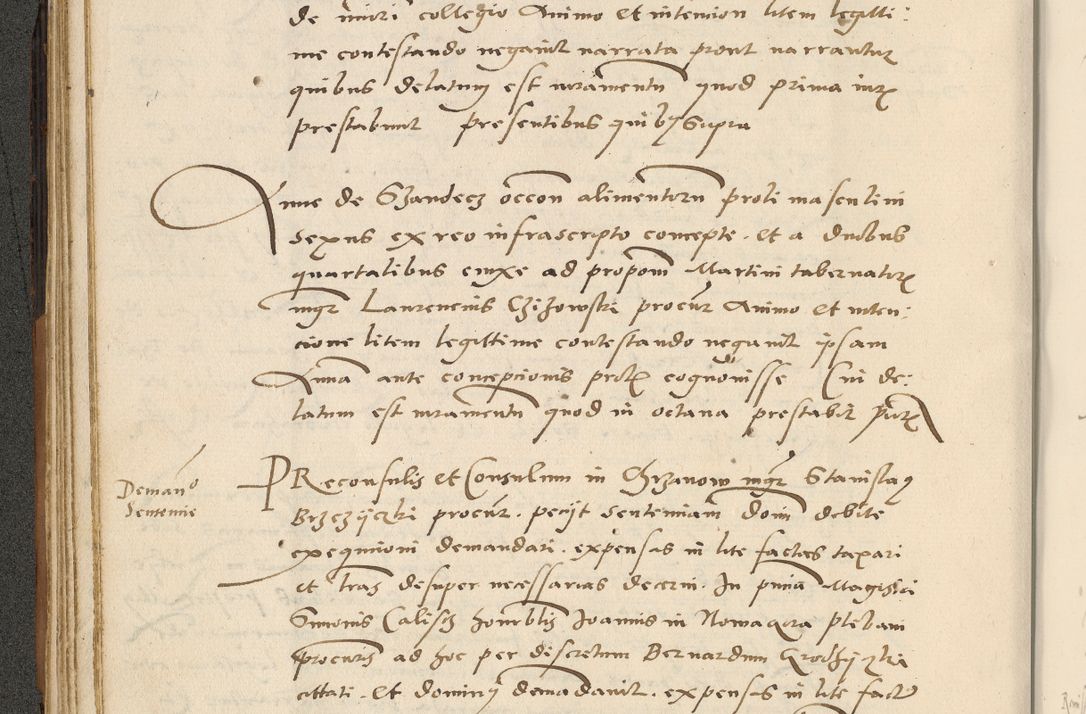 de miori collegio Animo et intencion litem legitti:
me contestando negavit narrata pront narrantur
quibus delatum est iuramentum quod prima iur
prestabunt presentibus quibus supra
Anne de Szandecz occon alimentorum proli masculini
sexus ex reo infrascripto concepte. et a duobus
quartalibus enixe ad propom Martini tabernatoris
mgr Laurencius Chizowski procur Animo et inten:
cione litem legittime contestando negavit ipsam
Annam ante concepcionis prolis cognovisse Cui de:
latum est iuramentum quod in octava prestabit
Demano
Sentenie
PReconsulis et Consulum in Chrzanow mgr Stanislaus
Brzezyczki procur. peciit sentenciam domi debite
exequicioni demandari. expensas in lite factas taxari
et lras desuper necessarias decerni. In pnia Magistri
Simonis Calisch honorablis Joannis in Nowagora plebani
procuris ad hoc per discretum Bernardum Grodzyzki
cittati. et dominus demandavit. expensas in lite fact